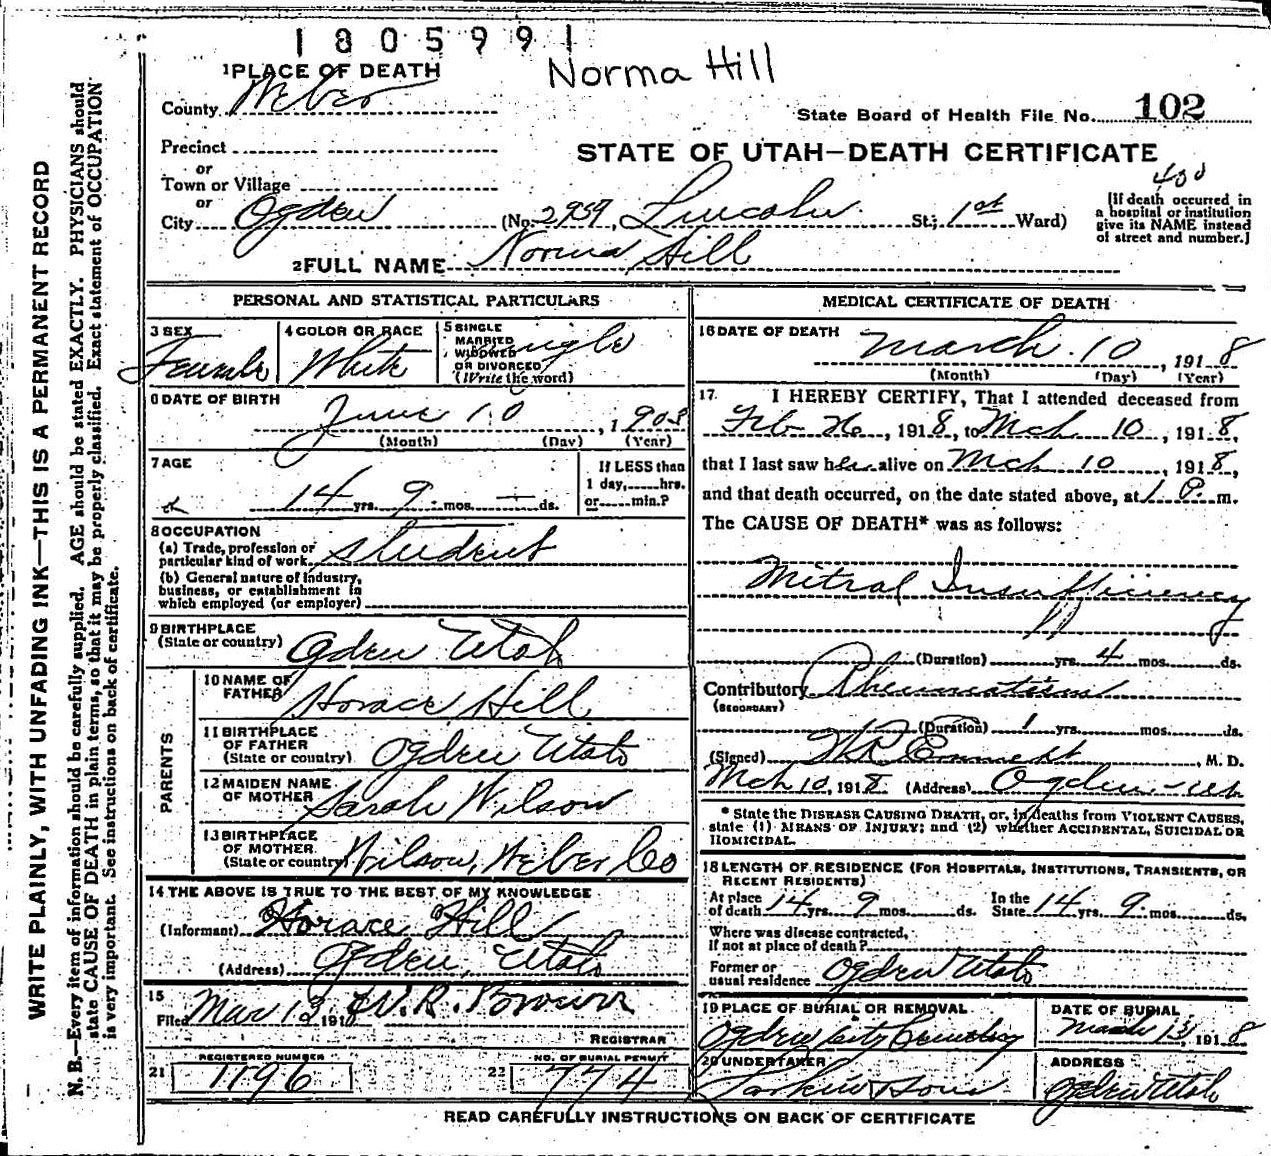 1805991
Norma Hill
1 PLACE OF DEATH
County Weber
State Board of Health File No. 102
Precinct
or
Town or Village
or
STATE OF UTAH—DEATH CERTIFICATE
400
City Ogden (No. 2959, Lincoln St.; 1st Ward)
[If death occurred in
a hospital or institution
give its NAME instead
of street and number.]
2 FULL NAME Norma Hill
WRITE PLAINLY, WITH UNFADING INK—THIS IS A PERMANENT RECORD
N. B.—Every item of information should be carefully supplied. AGE should be stated EXACTLY. PHYSICIANS should
state CAUSE OF DEATH in plain terms, so that it may be properly classified. Exact statement of OCCUPATION
is very important. See instructions on back of certificate.
PERSONAL AND STATISTICAL PARTICULARS
3 SEX
Female
4 COLOR OR RACE
White
5 SINGLE
MARRIED
WIDOWED
OR DIVORCED
(Write the word)
Single
6 DATE OF BIRTH
June 10, 1903
(Month) (Day) (Year)
7 AGE
14 yrs. 9 mos. — ds.
If LESS than
1 day, hrs.
or min.?
8 OCCUPATION
(a) Trade, profession or
particular kind of work student
(b) General nature of industry,
business, or establishment in
which employed (or employer)
9 BIRTHPLACE
(State or country) Ogden Utah
PARENTS
10 NAME OF
FATHER Horace Hill
11 BIRTHPLACE
OF FATHER
(State or country) Ogden Utah
12 MAIDEN NAME
OF MOTHER Sarah Wilson
13 BIRTHPLACE
OF MOTHER
(State or country) Wilson, Weber Co
14 THE ABOVE IS TRUE TO THE BEST OF MY KNOWLEDGE
(Informant) Horace Hill
(Address) Ogden, Utah
15
Filed Mar 13 1918 W. R. Brown
REGISTRAR
21 REGISTERED NUMBER
1196
22 NO. OF BURIAL PERMIT
774
MEDICAL CERTIFICATE OF DEATH
16 DATE OF DEATH
March 10, 1918
(Month) (Day) (Year)
17. I HEREBY CERTIFY, That I attended deceased from
Feb 26, 1918, to Mch 10, 1918,
that I last saw her alive on Mch 10, 1918,
and that death occurred, on the date stated above, at 1 P. m.
The CAUSE OF DEATH* was as follows:
Mitral Insufficiency
(Duration) yrs. 4 mos. ds.
Contributory Rheumatism
(SECONDARY)
(Duration) 1 yrs. mos. ds.
(Signed) Emmett, M. D.
Mch 10, 1918 (Address) Ogden, Utah
* State the DISEASE CAUSING DEATH, or, in deaths from VIOLENT CAUSES,
state (1) MEANS OF INJURY; and (2) whether ACCIDENTAL, SUICIDAL OR
HOMICIDAL.
18 LENGTH OF RESIDENCE (FOR HOSPITALS, INSTITUTIONS, TRANSIENTS, OR
RECENT RESIDENTS)
At place
of death 14 yrs. 9 mos. ds.
In the
State 14 yrs. 9 mos. ds.
Where was disease contracted,
if not at place of death?
Former or
usual residence Ogden Utah
19 PLACE OF BURIAL OR REMOVAL
Ogden City Cemetery
DATE OF BURIAL
March 13, 1918
20 UNDERTAKER
Larkin & Sons
ADDRESS
Ogden Utah
READ CAREFULLY INSTRUCTIONS ON BACK OF CERTIFICATE